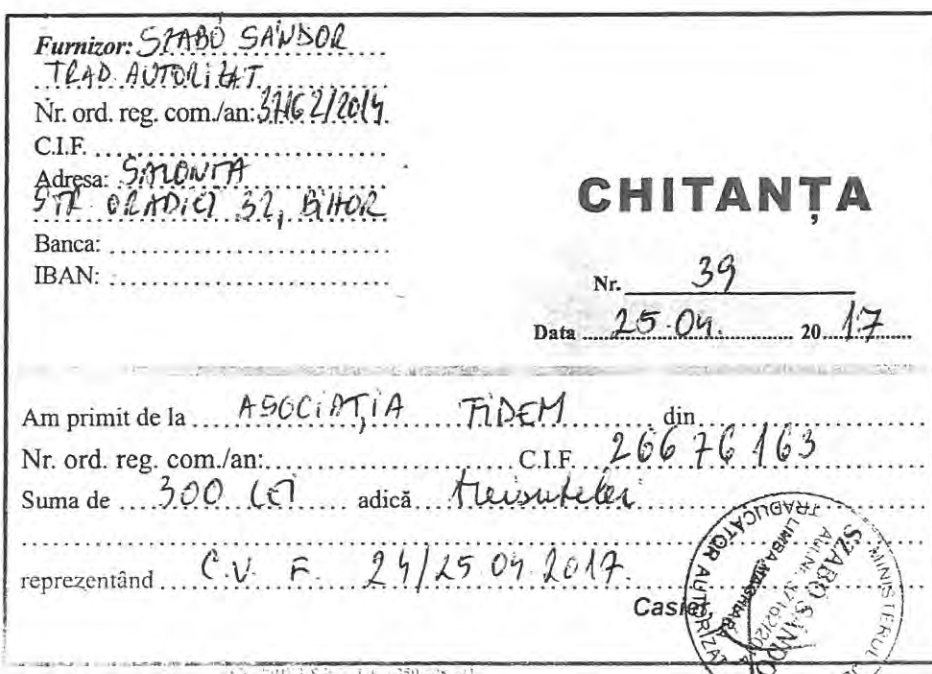 Furnizor: SZABÓ SÁNDOR
TRAD. AUTORIZAT
Nr. ord. reg. com./an: 37162/2014
C.I.F.
Adresa: SALONTA
STR. ORADIEI 32, BIHOR
Banca:
IBAN:
CHITANȚA
Nr. 39
Data 25.04. 2017
Am primit de la ASOCIAȚIA FIDEM din
Nr. ord. reg. com./an: C.I.F. 26676163
Suma de 300 LEI adică treisutelei
reprezentând C.V. F. 24/25.04.2017.
Casier,
MINISTERUL
TRADUCĂTOR AUTORIZAT
SZABÓ SÁNDO
Aut.Nr. 37162/201
LIMBA MAGHIARĂ